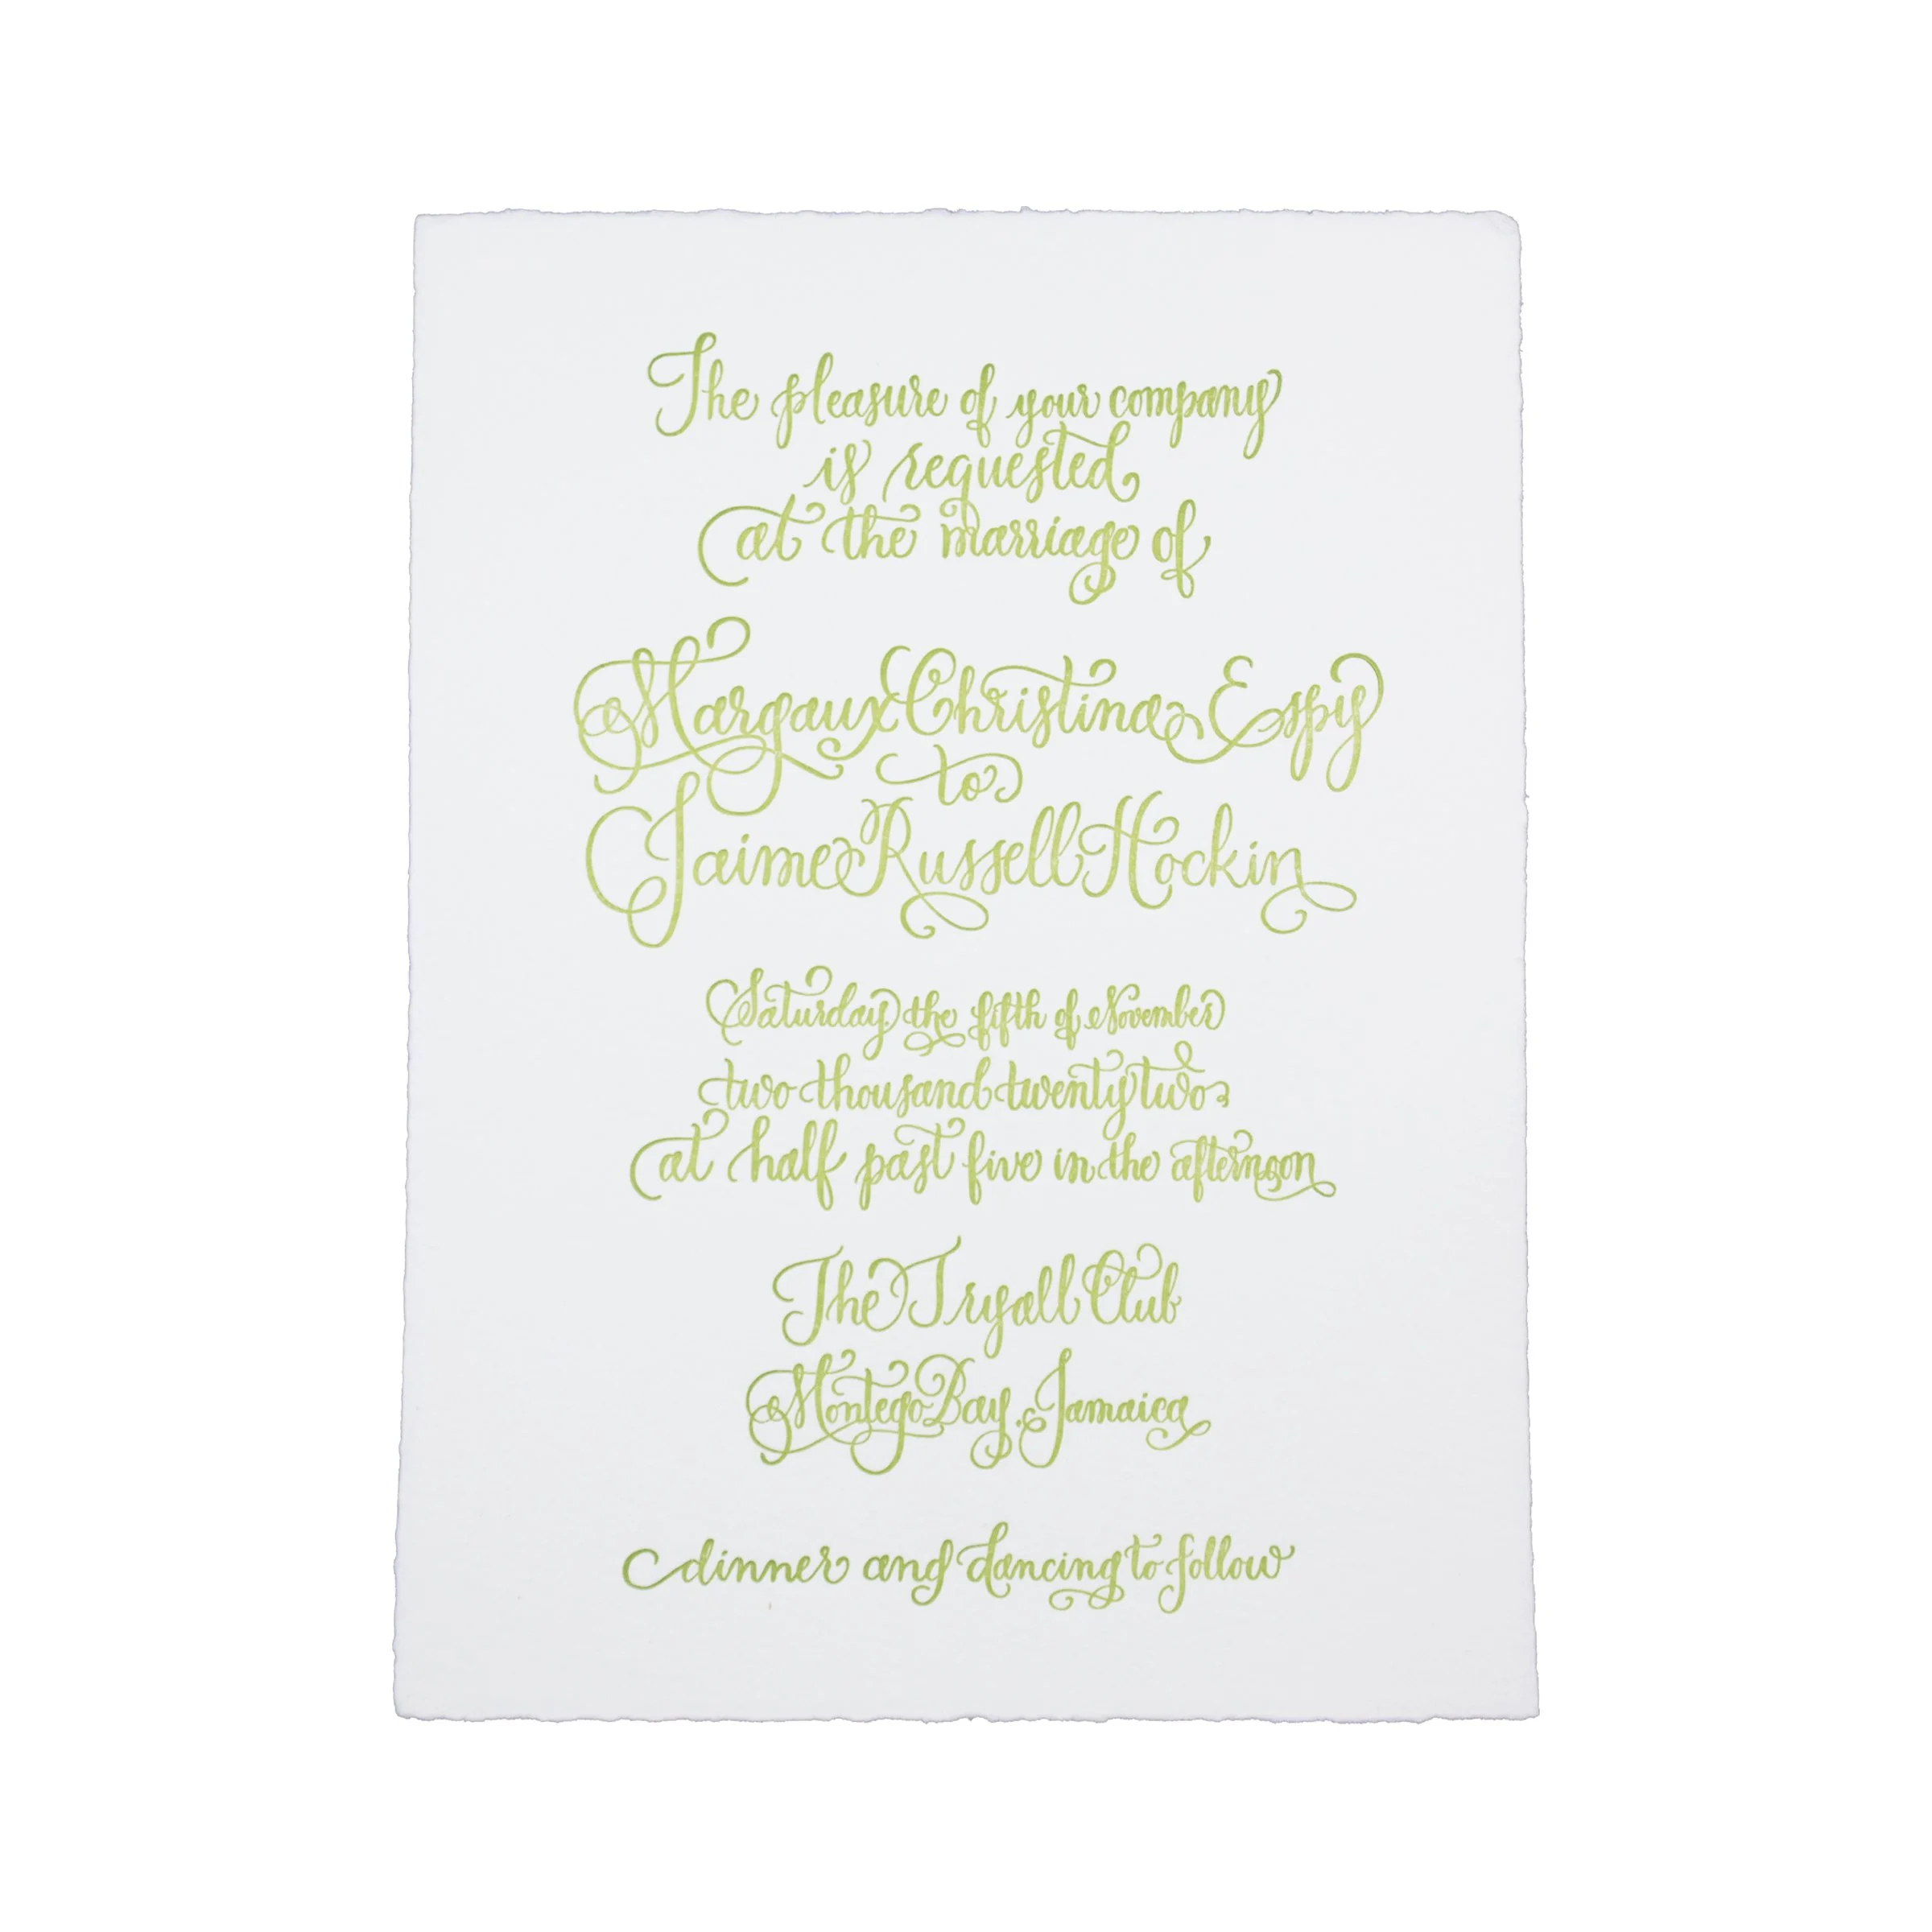 The pleasure of your company
is requested
at the marriage of
Margaux Christina Espy
to
Jaime Russell Hockin
Saturday, the fifth of November
two thousand twenty two
at half past five in the afternoon
The Tryall Club
Montego Bay, Jamaica
dinner and dancing to follow